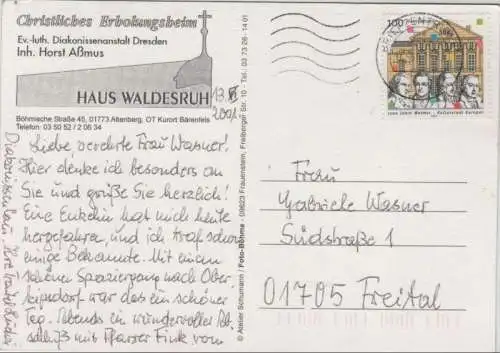 Christliches Erholungsheim
Ev.-luth. Diakonissenanstalt Dresden
Inh. Horst Aßmus
HAUS WALDESRUH
Böhmische Straße 45, 01773 Altenberg, OT Kurort Bärenfels
Telefon: 03 50 52 / 2 06 34
2001
Liebe, verehrte Frau Wasner!
Hier denke ich besonders an
Sie und grüße Sie herzlich!
Eine Enkelin hat mich heute
hergefahren, und ich traf schon
einige Bekannte. Mit einem
schönen Spaziergang nach Ober
kipsdorf war das ein schöner
Tag. Abends ein wundervoller Ab-
schluß mit Pfarrer Fink vom
Diakonissenhaus. Ihre
© Atelier Schumann / Foto-Böhme · 09623 Frauenstein, Freiberger Str. 10 · Tel. 03 73 26 - 14 01
100
Frau
Gabriele Wasner
Südstraße 1
01705 Freital